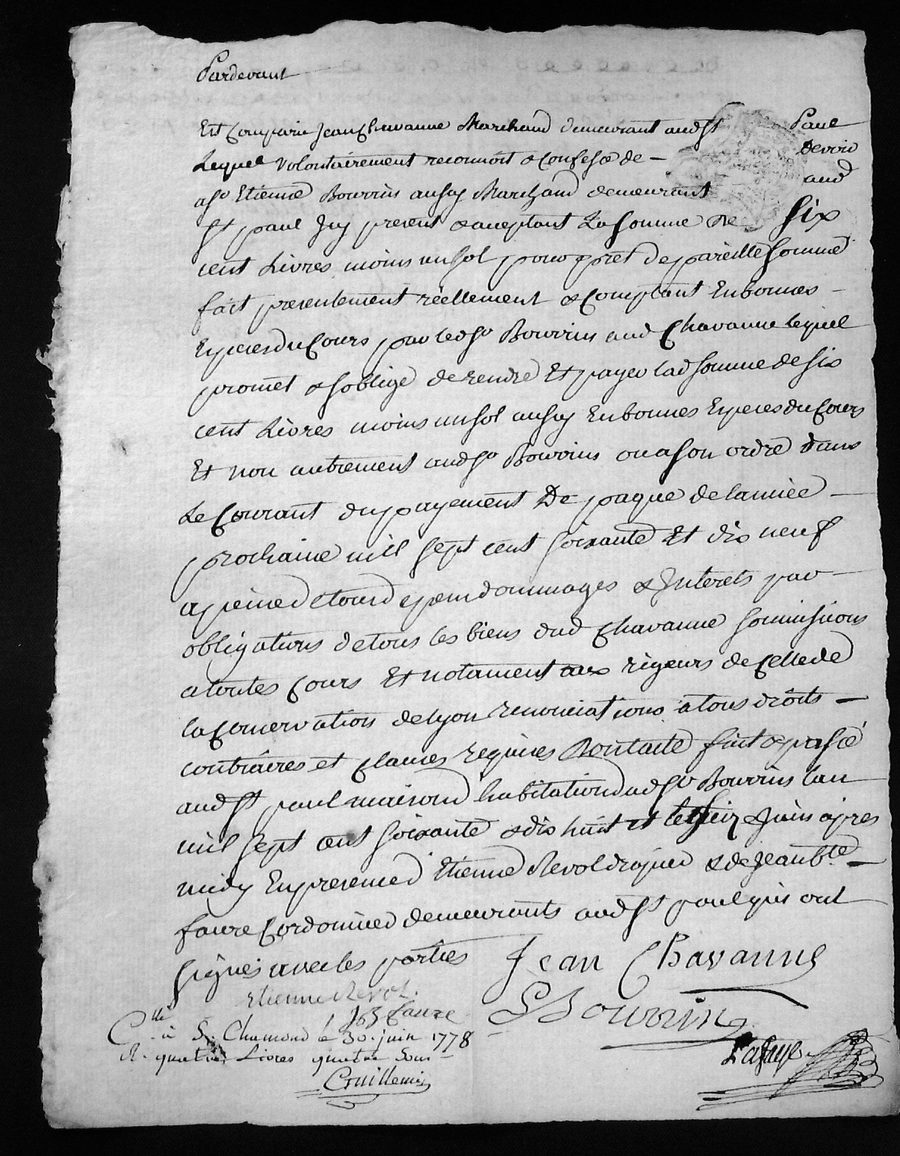 Pardevant
Est Comparu Jean Chavanne Marchand demeurant audst Paul
Lequel volontairement reconnoit & Confesse devoir
asr Etienne Bourrin aussy Marchand demeurant aud
st paul Icy present & acceptant La somme de six
cent Livres moins un sol pour pret de pareille somme
fait presentement réellement & Comptant En bonnes
Especes du Cours par ledsr Bourrin aud Chavanne lequel
promet & soblige de rendre Et payer lad somme de six
cent Livres moins un sol aussy En bonnes Especes du Cours
Et non autrement audsr Bourrin ou a son ordre dans
Le Courant du payement De paque de lannée
prochaine mill sept cent soixante Et dix neuf
a peine de tous depens dommages & Interets par
obligations de tous les biens dud Chavanne soumissions
a toutes Cours Et notament aux rigeurs de Celle de
la Conservation de lyon renonciations a tous droits
contraires et Clauses requises Dont acte fait & passé
audst paul maison d'habitation dudsr Bourrin lan
mil sept cent soixante & dix huit et le seize Juin apres
midy En presence d'Etienne Revol & de Jean bte
faure Cordonnier demeurants audst paul qui ont
signés avec les parties
Jean Chavanne
Etienne Revol
Faure
Bourrin
Cllé à St Chamond le 30. juin 1778
R. quatre Livres quatre sous